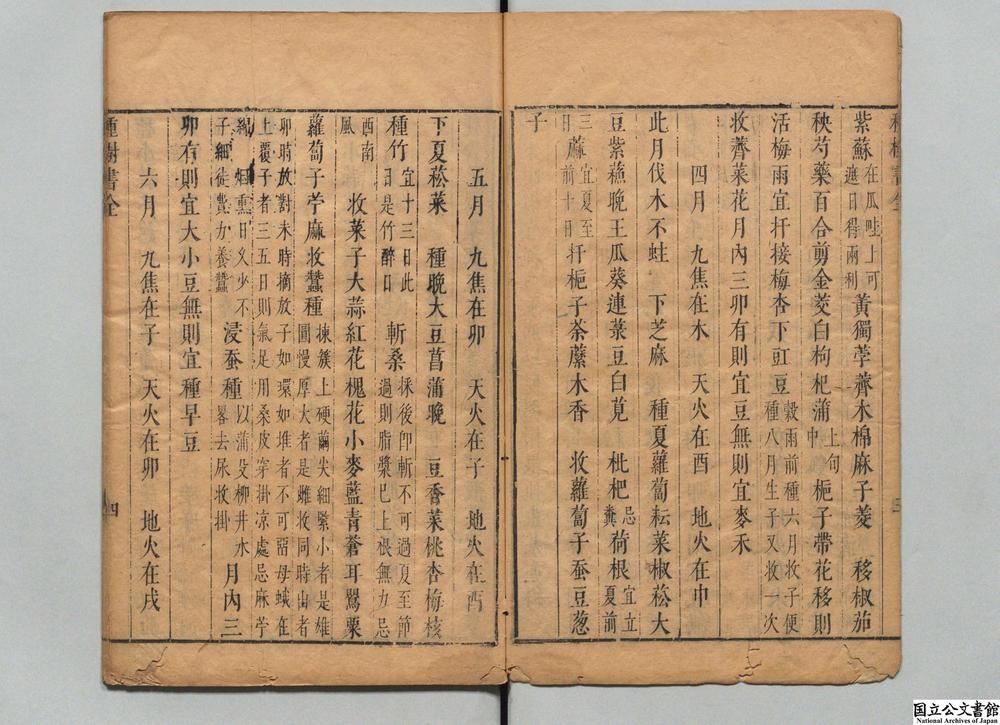 紫蘇在瓜畦上可遮日得兩利黃獨葶薺木棉麻子菱　移椒茄
秧芍藥百合剪金茭白枸杞蒲上旬中梔子帶花移則
活梅雨宜扦接梅杏下豇豆穀雨前種六月收子便種八月生子又收一次
收薺菜花月內三卯有則宜豆無則宜麥禾
四月　九焦在木　天火在酉　地火在申
此月伐木不蛀　下芝麻　種夏蘿蔔耘菜椒菘大
豆紫蘓晚王瓜葵連菉豆白莧　枇杷忌糞荷根宜立夏前
三日蔴宜夏至前十日扦梔子荼䕷木香　收蘿蔔子蚕豆葱
子
五月　九焦在卯　天火在子　地火在酉
下夏菘菜　種晚大豆菖蒲晚　豆香菜桃杏梅核
種竹宜十三日此日是竹醉日　斬桑採後卽斬不可過夏至節過則脂漿已上根無力忌
西南風　收菜子大蒜紅花槐花小麥藍青蒼耳罌粟
蘿蔔子苧麻收蠶種揀簇上硬繭尖細緊小者是雄圓慢厚大者是雌收同時出者
卯時放對未時摘放子如環如堆者不可留母蛾在
上覆子者三五日則氣足用桑皮穿掛凉處忌麻苧
綿烟熏日久少不子細徒費力養蠶浸蚕種以蒲殳柳井水畧去尿收掛月內三
卯有則宜大小豆無則宜種早豆
六月　九焦在子　天火在卯　地火在戌
種樹書全
四
国立公文書館
National Archives of Japan